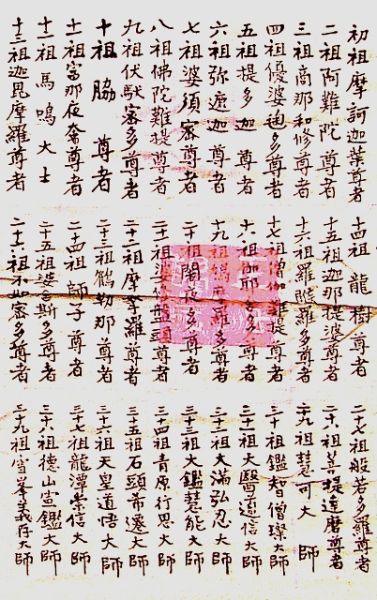 初祖摩訶迦葉尊者
二祖阿難陀尊者
三祖商那和修尊者
四祖優婆毱多尊者
五祖提多迦尊者
六祖弥遮迦尊者
七祖婆須宻多尊者
八祖佛陀難提尊者
九祖伏馱宻多尊者
十祖脇尊者
十一祖富那夜奢尊者
十二祖馬鳴大士
十三祖迦毘摩羅尊者
十四祖龍樹尊者
十五祖迦那提婆尊者
十六祖羅睺羅多尊者
十七祖僧伽難提尊者
祖伽耶多尊者
十九祖羅多尊者
二十祖闍夜多尊者
二十祖頭尊者
二十二祖摩拏羅尊者
二十三祖鶴勒那尊者
二十四祖師子尊者
二十五祖婆舍斯多尊者
二十六祖不如宻多尊者
二十七祖般若多羅尊者
二十八祖菩提達磨尊者
二十九祖慧可大師
三十祖鑑智僧璨大師
三十一祖大醫道信大師
三十二祖大滿弘忍大師
三十三祖大鑑慧能大師
三十四祖青原行思大師
三十五祖石頭希遷大師
三十六祖天皇道悟大師
三十七祖龍潭崇信大師
三十八祖德山宣鑑大師
三十九祖雪峯義存大師